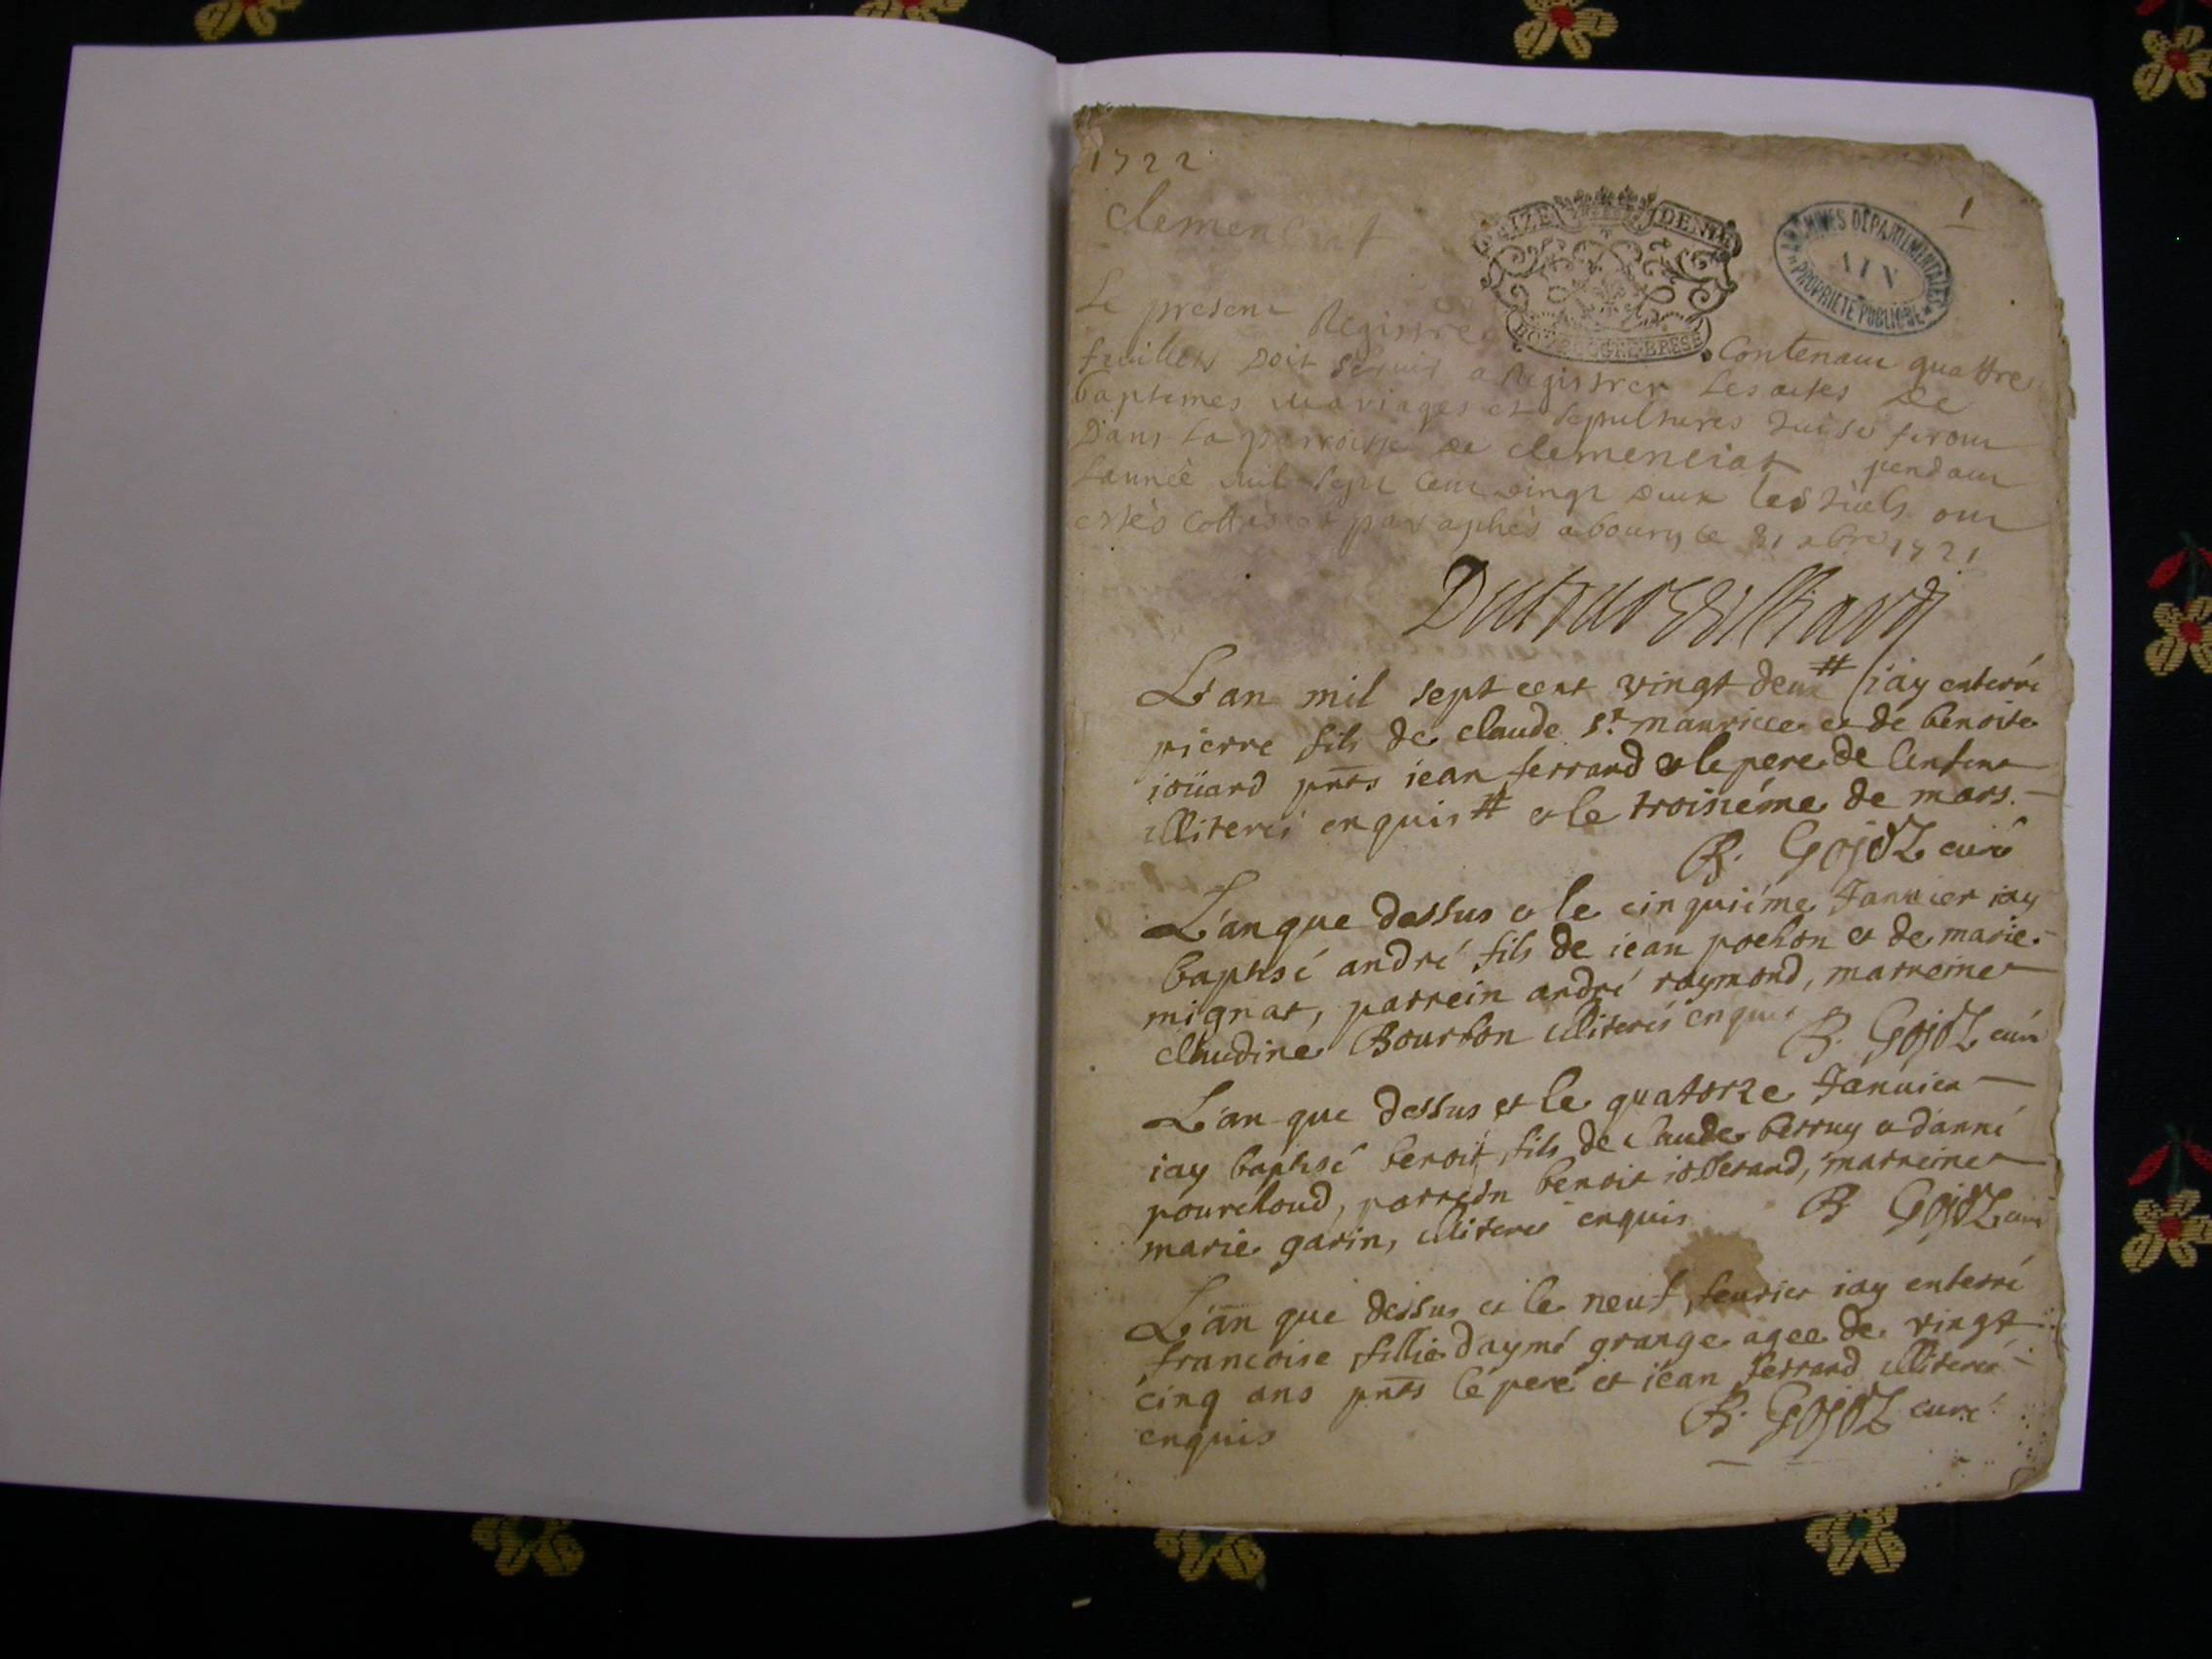 1722
1
clemenciat
SEIZE DENIE
BOURGOGNE·BRESE
ARCHIVES DÉPARTEMENTALES
AIN
PROPRIÉTÉ PUBLIQUE
Le present Registre Contenant quattre
feuillets doit servir a Registrer Les actes de
baptemes mariages et sepultures qui se feront
Dans La parroisse de clemenciat pendant
Lannéé mil sept cent vingt deux lesquels ont
estés cottés et paraphés a bourg le 31 xbre 1721
L'an mil sept cent vingt deux # iay enterré
pierre fils de claude st maurice et de benoite
ioüard pnts iean ferrand et le pere de lenfant
illiterés enquis # et le troisiéme de mars.
B. Gojoz curé
L'an que dessus et le cinquiéme Januier iay
baptisé andré fils de iean pochon et de marie
mignat, parrein andré raymond, marreine
claudine Bourbon illiterés enquis B. Gojoz curé
L'an que dessus et le quatorze Januier
iay baptisé benoit fils de claude perruy et d'anne
pourchoud, parrein benoit iosserand, marreine
marie garin, illiteres enquis B. Gojoz curé
L'an que dessus et le neuf feurier iay enterré
francoise fillie d'aymé grange agee de vingt
cinq ans pnts le pere et iean ferrand illiterés
enquis B. Gojoz curé